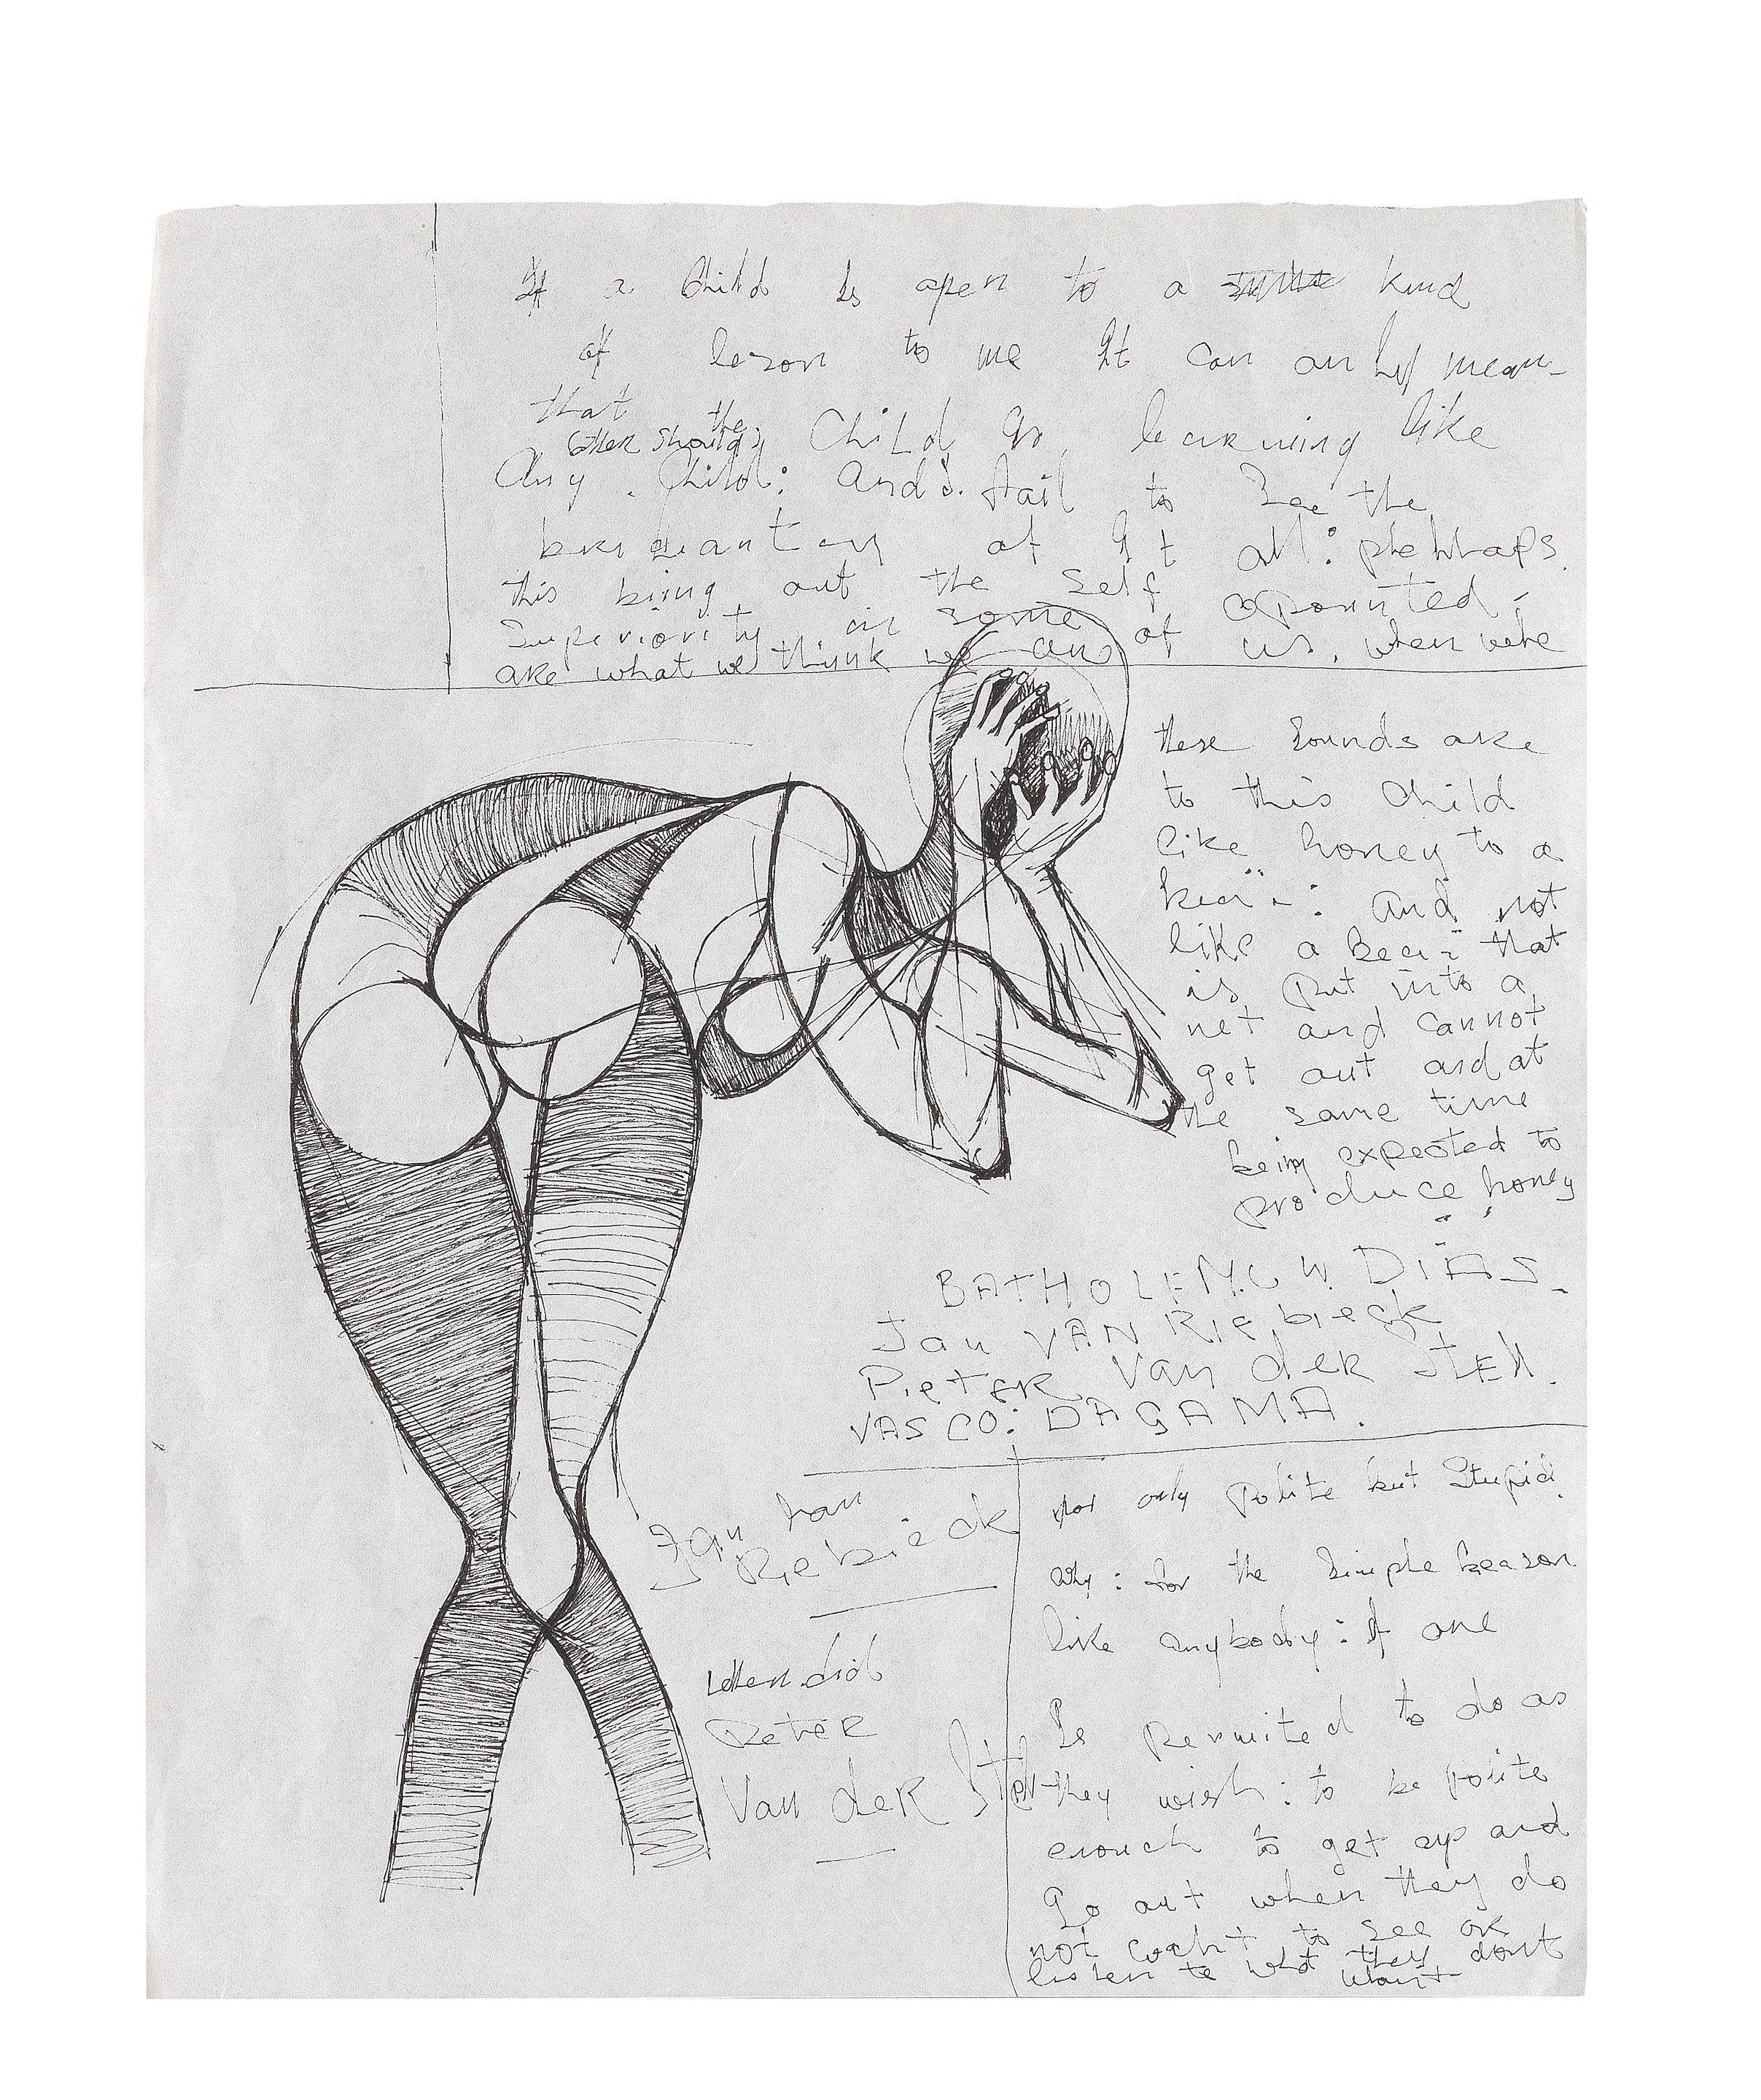 If a Child Is open to a kind
of leson to me It can only mean
that
other should the Child go learning like
Any Child: And fail to See the
of It all: phehraps
this bring out the Self
Superiority in some of us, when wehe
are what we think we are
these Sounds are
to this Child
like honey to a
And not
like a Bear that
is put into a
net and cannot
get out and at
the same time
being expected to
produce honey
BATHOLEMCW. DIAS.
Jan VAN RIEbieck
PieTER Van der STEll.
VASCO: DAGAMA.
Jan van
Rebieck
When did
Peter
Van deR Stel
not only Polite but Stupid.
Why: for the Simple Reason
like anybody: if one
Is Permited to do as
they wish: to be polite
enouch to get up and
Go out when they do
not want to see or
listen to what they dont
want